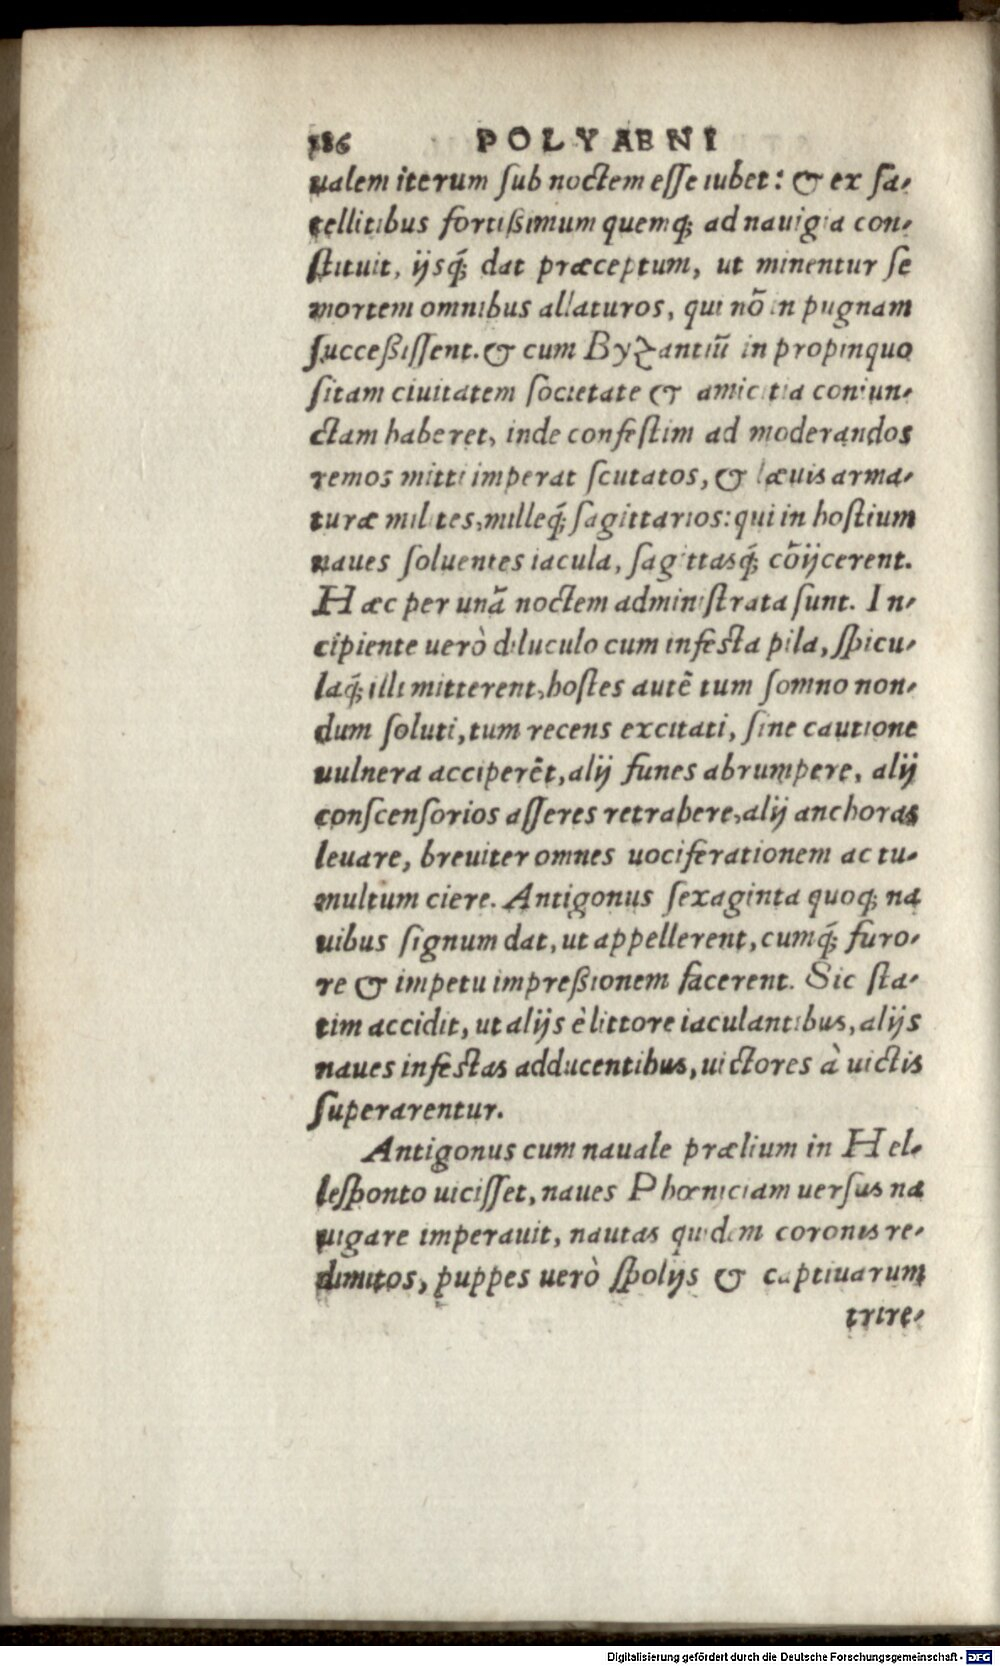 186 POLYAENI
ualem iterum ſub noctem eſſe iubet: & ex ſa-
tellitibus fortißimum quemq; ad nauigia con-
ſtituit, ijsq́; dat præceptum, ut minentur ſe
mortem omnibus allaturos, qui nõ in pugnam
ſucceßiſſent. & cum Byzantiũ in propinquo
ſitam ciuitatem ſocietate & amicitia coniun-
ctam haberet, inde confeſtim ad moderandos
remos mitti imperat ſcutatos, & læuis arma-
turæ milites, milleq́; ſagittarios: qui in hoſtium
naues ſoluentes iacula, ſagittasq́; cõijcerent.
Hæc per unã noctem adminiſtrata ſunt. In-
cipiente uerò diluculo cum infeſta pila, ſpicu-
laq́; illi mitterent, hoſtes autẽ tum ſomno non-
dum ſoluti, tum recens excitati, ſine cautione
uulnera acciperẽt, alij funes abrumpere, alij
conſcenſorios aſſeres retrahere, alij anchoras
leuare, breuiter omnes uociferationem ac tu-
multum ciere. Antigonus ſexaginta quoq; na
uibus ſignum dat, ut appellerent, cumq́; furo-
re & impetu impreßionem facerent. Sic ſta-
tim accidit, ut alijs è littore iaculantibus, alijs
naues infeſtas adducentibus, uictores à uictis
ſuperarentur.
Antigonus cum nauale prælium in Hel-
leſponto uiciſſet, naues Phœniciam uerſus na
uigare imperauit, nautas quidem coronis re-
dimitos, puppes uerò ſpolijs & captiuarum
trire-
Digitalisierung gefördert durch die Deutsche Forschungsgemeinschaft - DFG